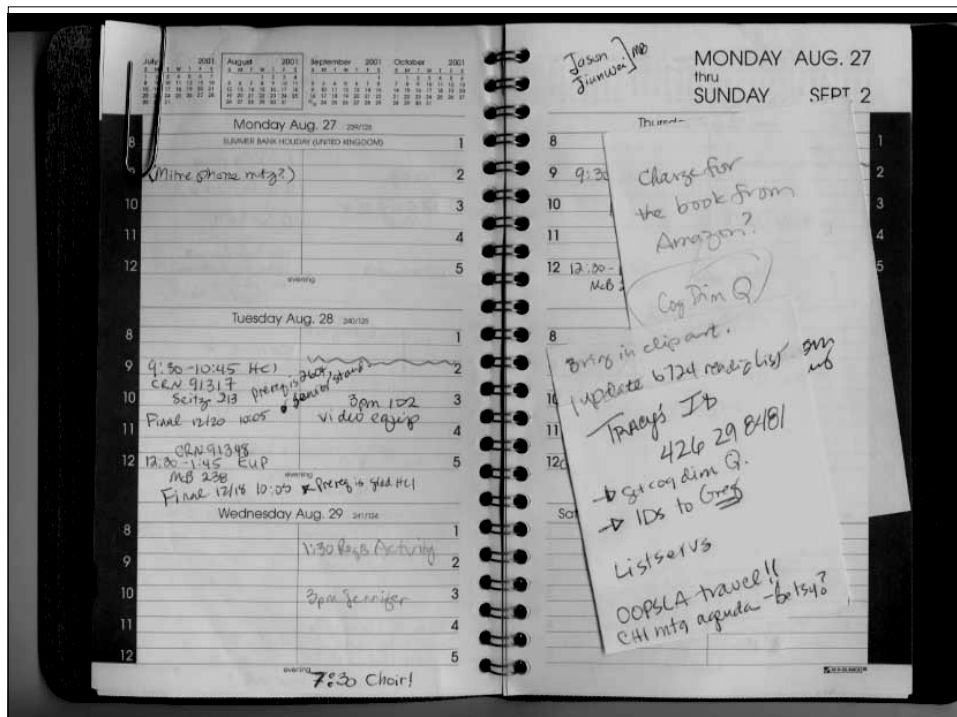 July 2001
August 2001
September 2001
October 2001
Monday Aug. 27 239/126
SUMMER BANK HOLIDAY (UNITED KINGDOM)
8 1
(Mime phone mtg?) 2
10 3
11 4
12 5
evening
Tuesday Aug. 28 240/125
8 1
9 9:30-10:45 HCI 2
CRN 91317 prereq is 2604,
10 Seitz 213 senior stand 3
3pm 102
11 Final 12/20 10:05 video equip 4
CRN 91348
12 12:30-1:45 EUP 5
McB 238 evening
Final 12/18 10:05 * Prereq is grad HCI
Wednesday Aug. 29 241/124
8 1
1:30 Activity
9 2
10 3pm Jennifer 3
11 4
12 5
evening
7:30 Choir!
Jason
Jianwei
MONDAY AUG. 27
thru
SUNDAY SEPT. 2
8 1
9 9:30 2
10 3
11 4
12 12:30- 5
McB
8
10
11
12
Charge for
the book from
Amazon?
Cog Dim Q
Bring in clipart.
update 6724 readig list
Tracy's ID
426 29 8481
→ S+cog dim Q.
→ IDs to Greg
Listservs
OOPSLA travel!!
CHI mtg agenda - betsy?